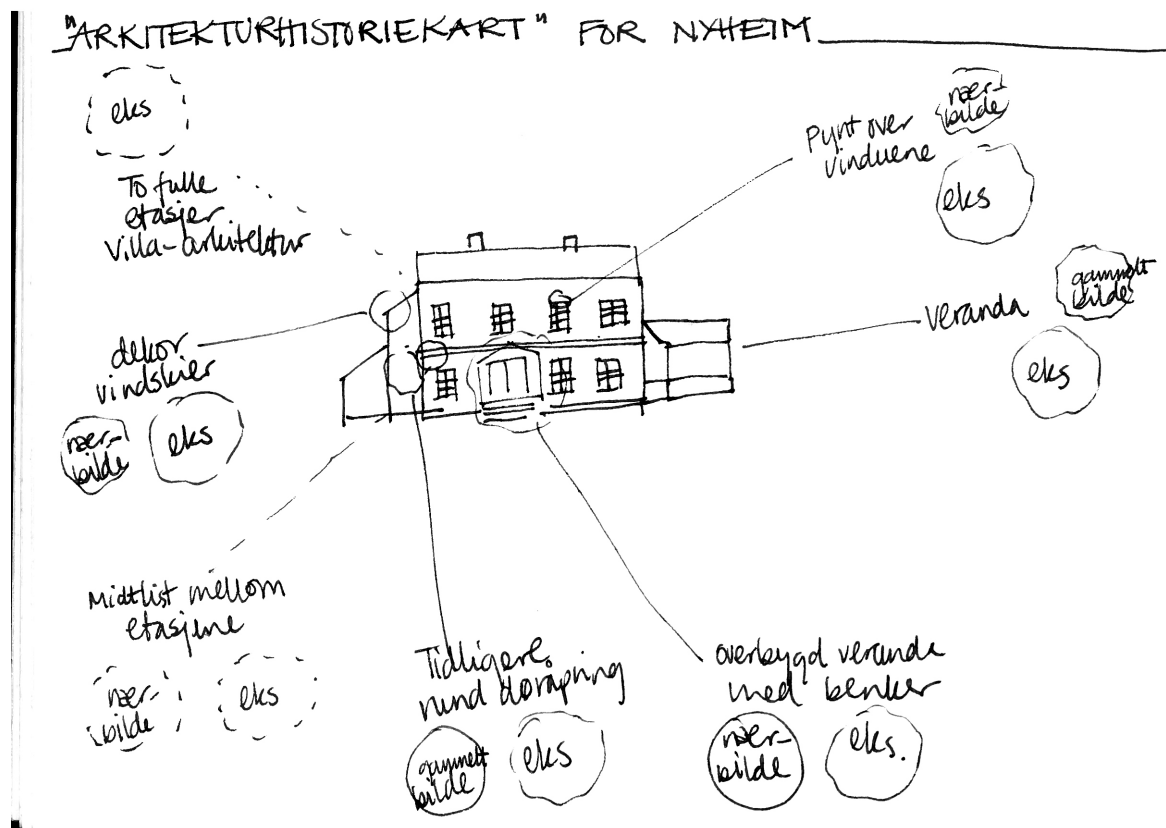 "ARKITEKTURHISTORIEKART" FOR NYHEIM
eks
To fulle
etasjer
villa-arkitektur
Pynt over
vinduene
nær-
bilde
eks
veranda
gammelt
bilde
eks
dekor
vindskier
nær-
bilde
eks
Midtlist mellom
etasjene
nær-
bilde
eks
Tidligere
rund døråpning
gammelt
bilde
eks
overbygd veranda
med benker
nær-
bilde
eks.